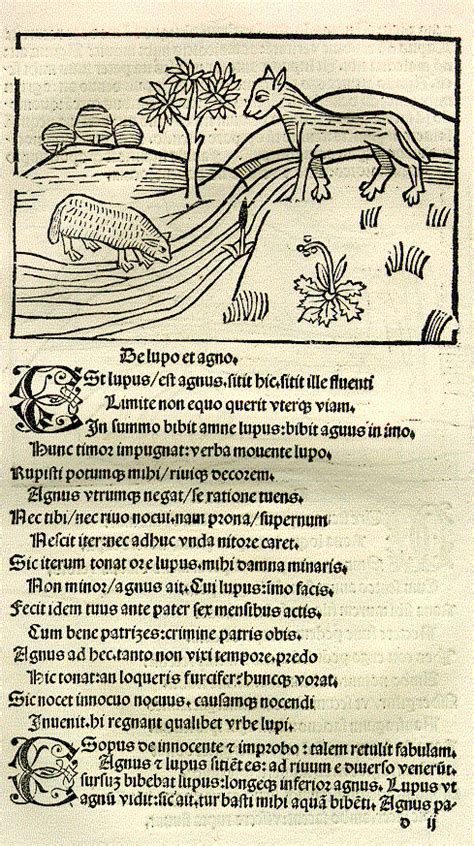 De lupo et agno.
Est lupus/est agnus, sitit hic, sitit ille fluenti
Limite non equo querit vterqꝫ viam.
In summo bibit amne lupus: bibit agnus in imo.
Hunc timor impugnat: verba mouente lupo.
Rupisti potumqꝫ mihi/riuiqꝫ decorem.
Agnus vtrumqꝫ negat/se ratione tuens.
Nec tibi/nec riuo nocui, nam prona/supernum
Nescit iter: nec adhuc vnda nitore caret.
Sic iterum tonat ore lupus, mihi damna minaris.
Non minor/agnus ait. Cui lupus: imo facis.
Fecit idem tuus ante pater sex mensibus actis.
Cum bene patrizes: crimine patris obis.
Agnus ad hec, tanto non vixi tempore, predo
Hic tonat: an loqueris furcifer: huncqꝫ vorat.
Sic nocet innocuo nocuus, causamqꝫ nocendi
Inuenit. hi regnant qualibet vrbe lupi.
Esopus de innocente ⁊ improbo: talem retulit fabulam.
Agnus ⁊ lupus sitiẽtes: ad riuum e diuerso venerũt.
sursuꝫ bibebat lupus: longeqꝫ inferior agnus. Lupus vt
agnũ vidit: sic ait, turbasti mihi aquã bibẽti. Agnus pa⸗
d ij